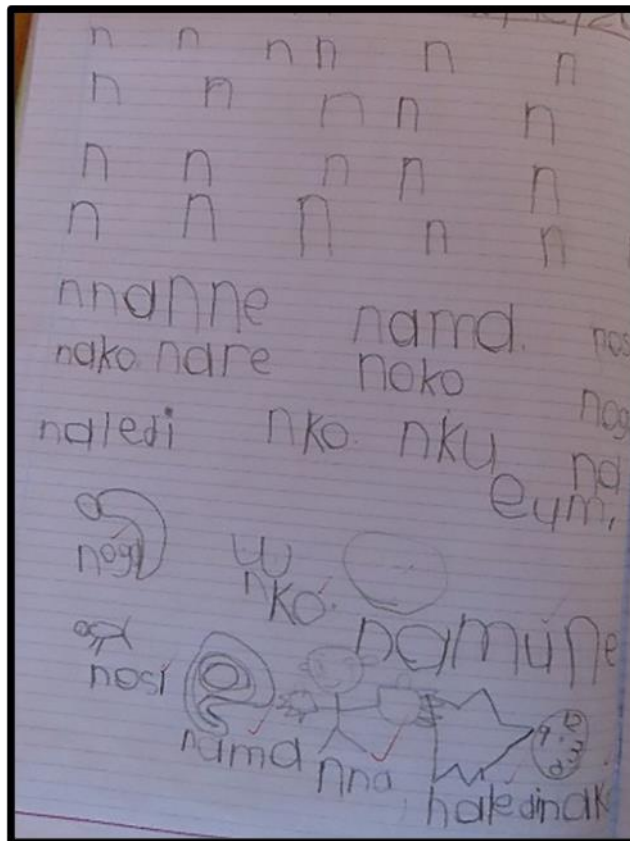 n n n n n n
n n n n n
n n n n n
n n n n n
nnanne nama. nosi
nako nare noko nog
naledi nko. nku na
eum,
nogi
nko.
namune
nosi
nama nna
naledi nak
9 12 3 6